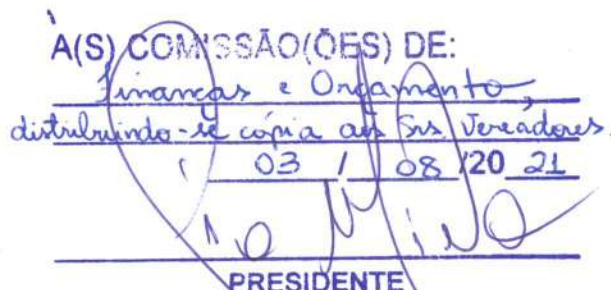 À(S) COMISSÃO(ÕES) DE:
Finanças e Orçamento,
distribuindo-se cópia aos Srs. Vereadores.
03 / 08 /20 21
PRESIDENTE